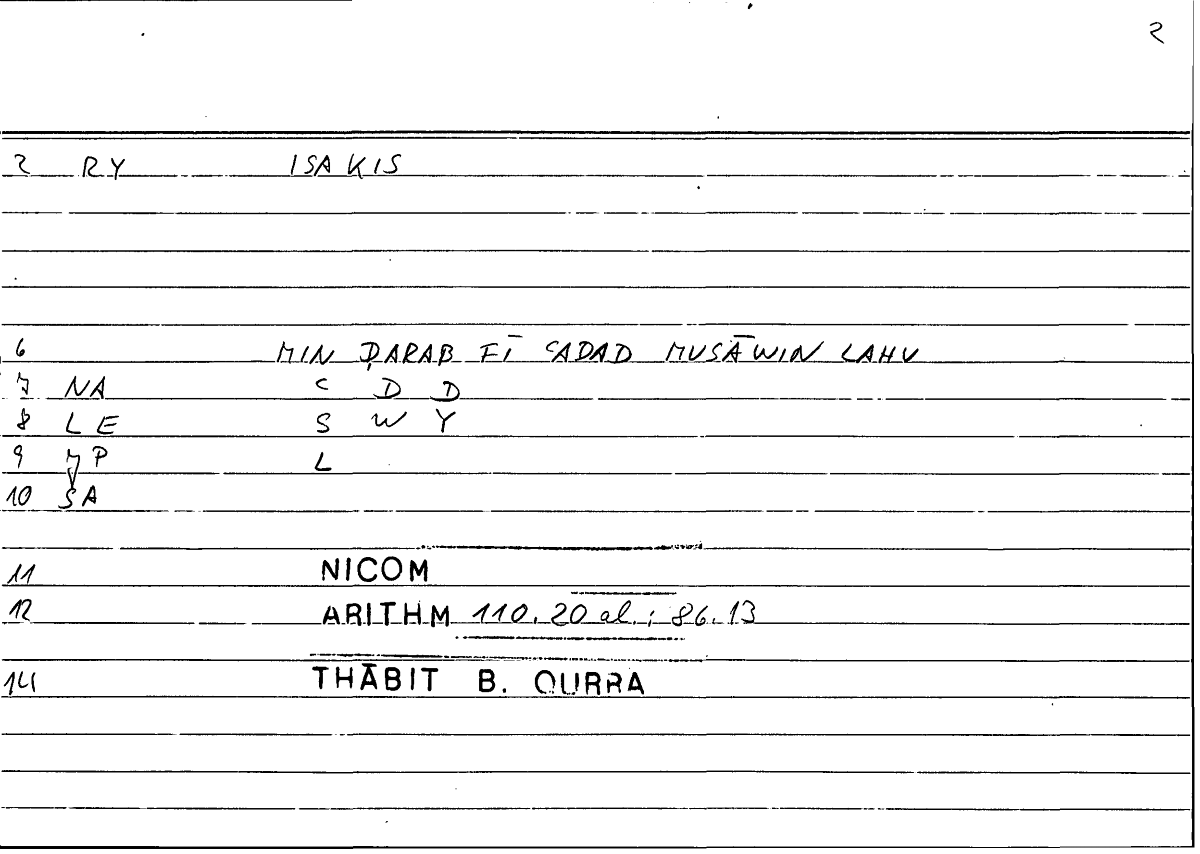 2
2 RY ISAKIS
6 MIN ḌARAB FĪ ʿADAD MUSĀWIN LAHU
7 NA C D D
8 LE S W Y
9 JP L
10 SA
11 NICOM
12 ARITHM 110.20 al.; 86.13
14 THĀBIT B. QURRA